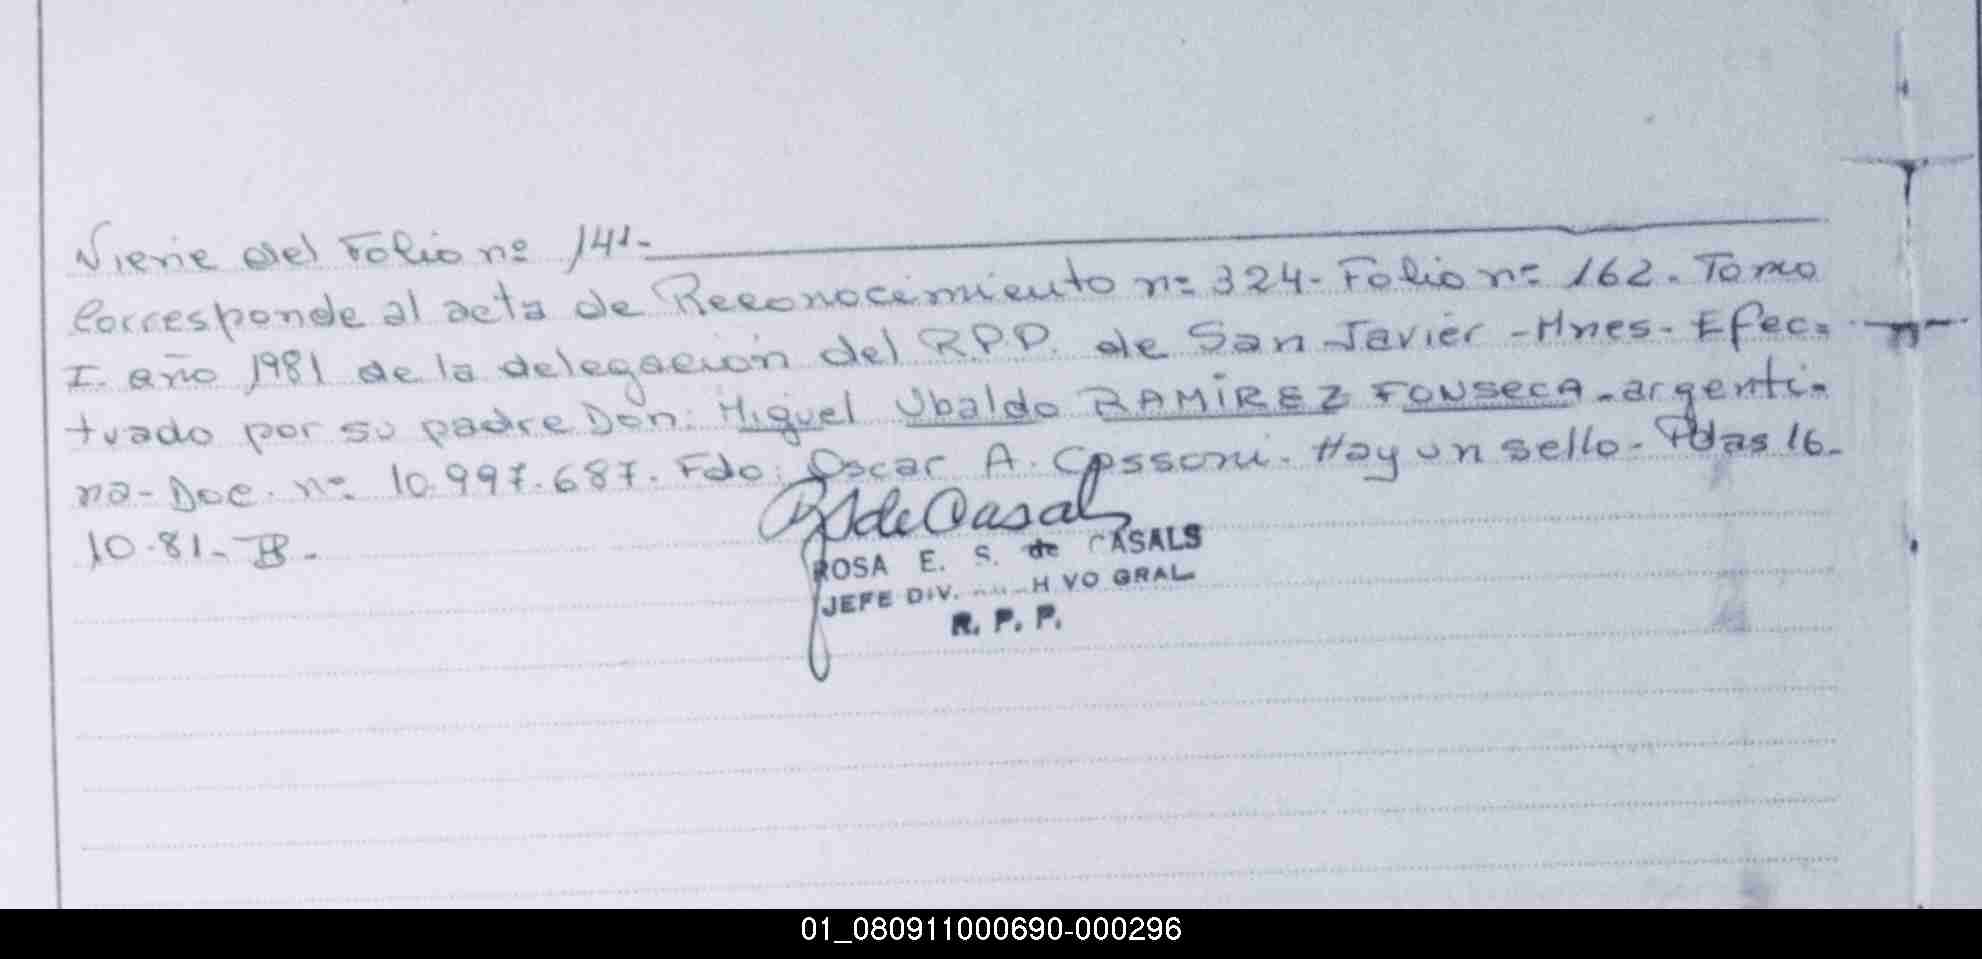 Viene del Folio nº 141-
Corresponde al acta de Reconocimiento nº 324- Folio nº 162. Tomo
I. año 1981 de la delegación del R.P.P. de San Javier - Mnes- Efec=
tuado por su padre Don: Miguel Ubaldo RAMÍREZ FONSECA - argenti=
na- Doc. nº 10.997.687. Fdo: Oscar A. Hay un sello- Pdas 16-
10-81-
ROSA E. S. de CASALS
JEFE DIV. GRAL.
R. P. P.
01_080911000690-000296